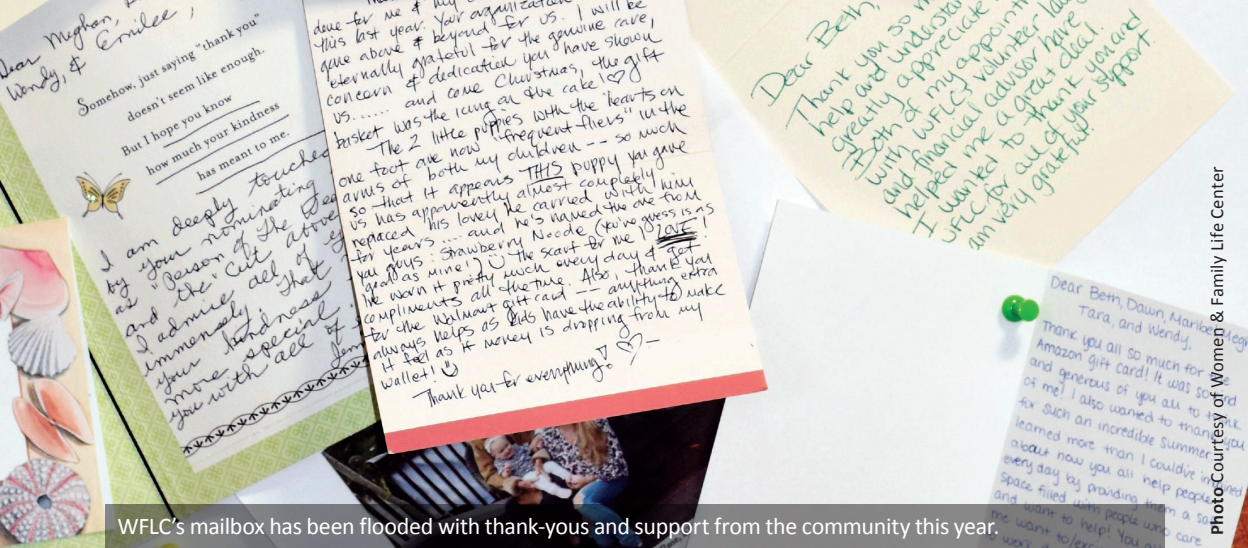 Dear Meghan,
Wendy, & Emilee,
Somehow, just saying "thank you"
doesn't seem like enough.
But I hope you know
how much your kindness
has meant to me.
I am deeply touched
by your nominating
as "Person of the
and the "Cut above
I admire all of
immensely that
your kindness
more special
you with all of
done for me & my
this last year. Your organization
gone above & beyond for us. I will be
eternally grateful for the genuine care,
concern & dedication you have shown
us...... and come Christmas, the gift
basket was the icing on the cake! ♡
The 2 little puppies with the "hearts on
one foot are now "frequent fliers" in the
arms of both my children -- so much
so that it appears THIS puppy you gave
us has apparently almost completely
replaced his lovey he carried with him
for years .... and he's named the one from
you guys: Strawberry Noodle (you're guess is as
good as mine!) ☺ the scarf for me, I LOVE!
I've worn it pretty much every day & get
compliments all the time. Also, thank you
for the Walmart gift card -- anything extra
always helps as kids have the ability to make
it feel as if money is dropping from my
wallet! ☺
Thank you for everything! ♡-
Dear Beth,
Thank you so
help and understa
greatly appreciate
Both of my appoint
with WFLC's volunteer la
and financial advisor have
helped me a great deal.
I wanted to thank you and
WFLC for all of your support.
am very grateful!
Dear Beth, Dawn, Maribel,
Tara, and Wendy,
Thank you all so much for the
Amazon gift card! It was so kind
and generous of you all to think
of me! I also wanted to thank you
for such an incredible summer
learned more than I could've imagined
about how you all help people
everyday by providing them a
space filled with people who care
and want to help! You
me want to
Photo Courtesy of Women & Family Life Center
WFLC's mailbox has been flooded with thank-yous and support from the community this year.